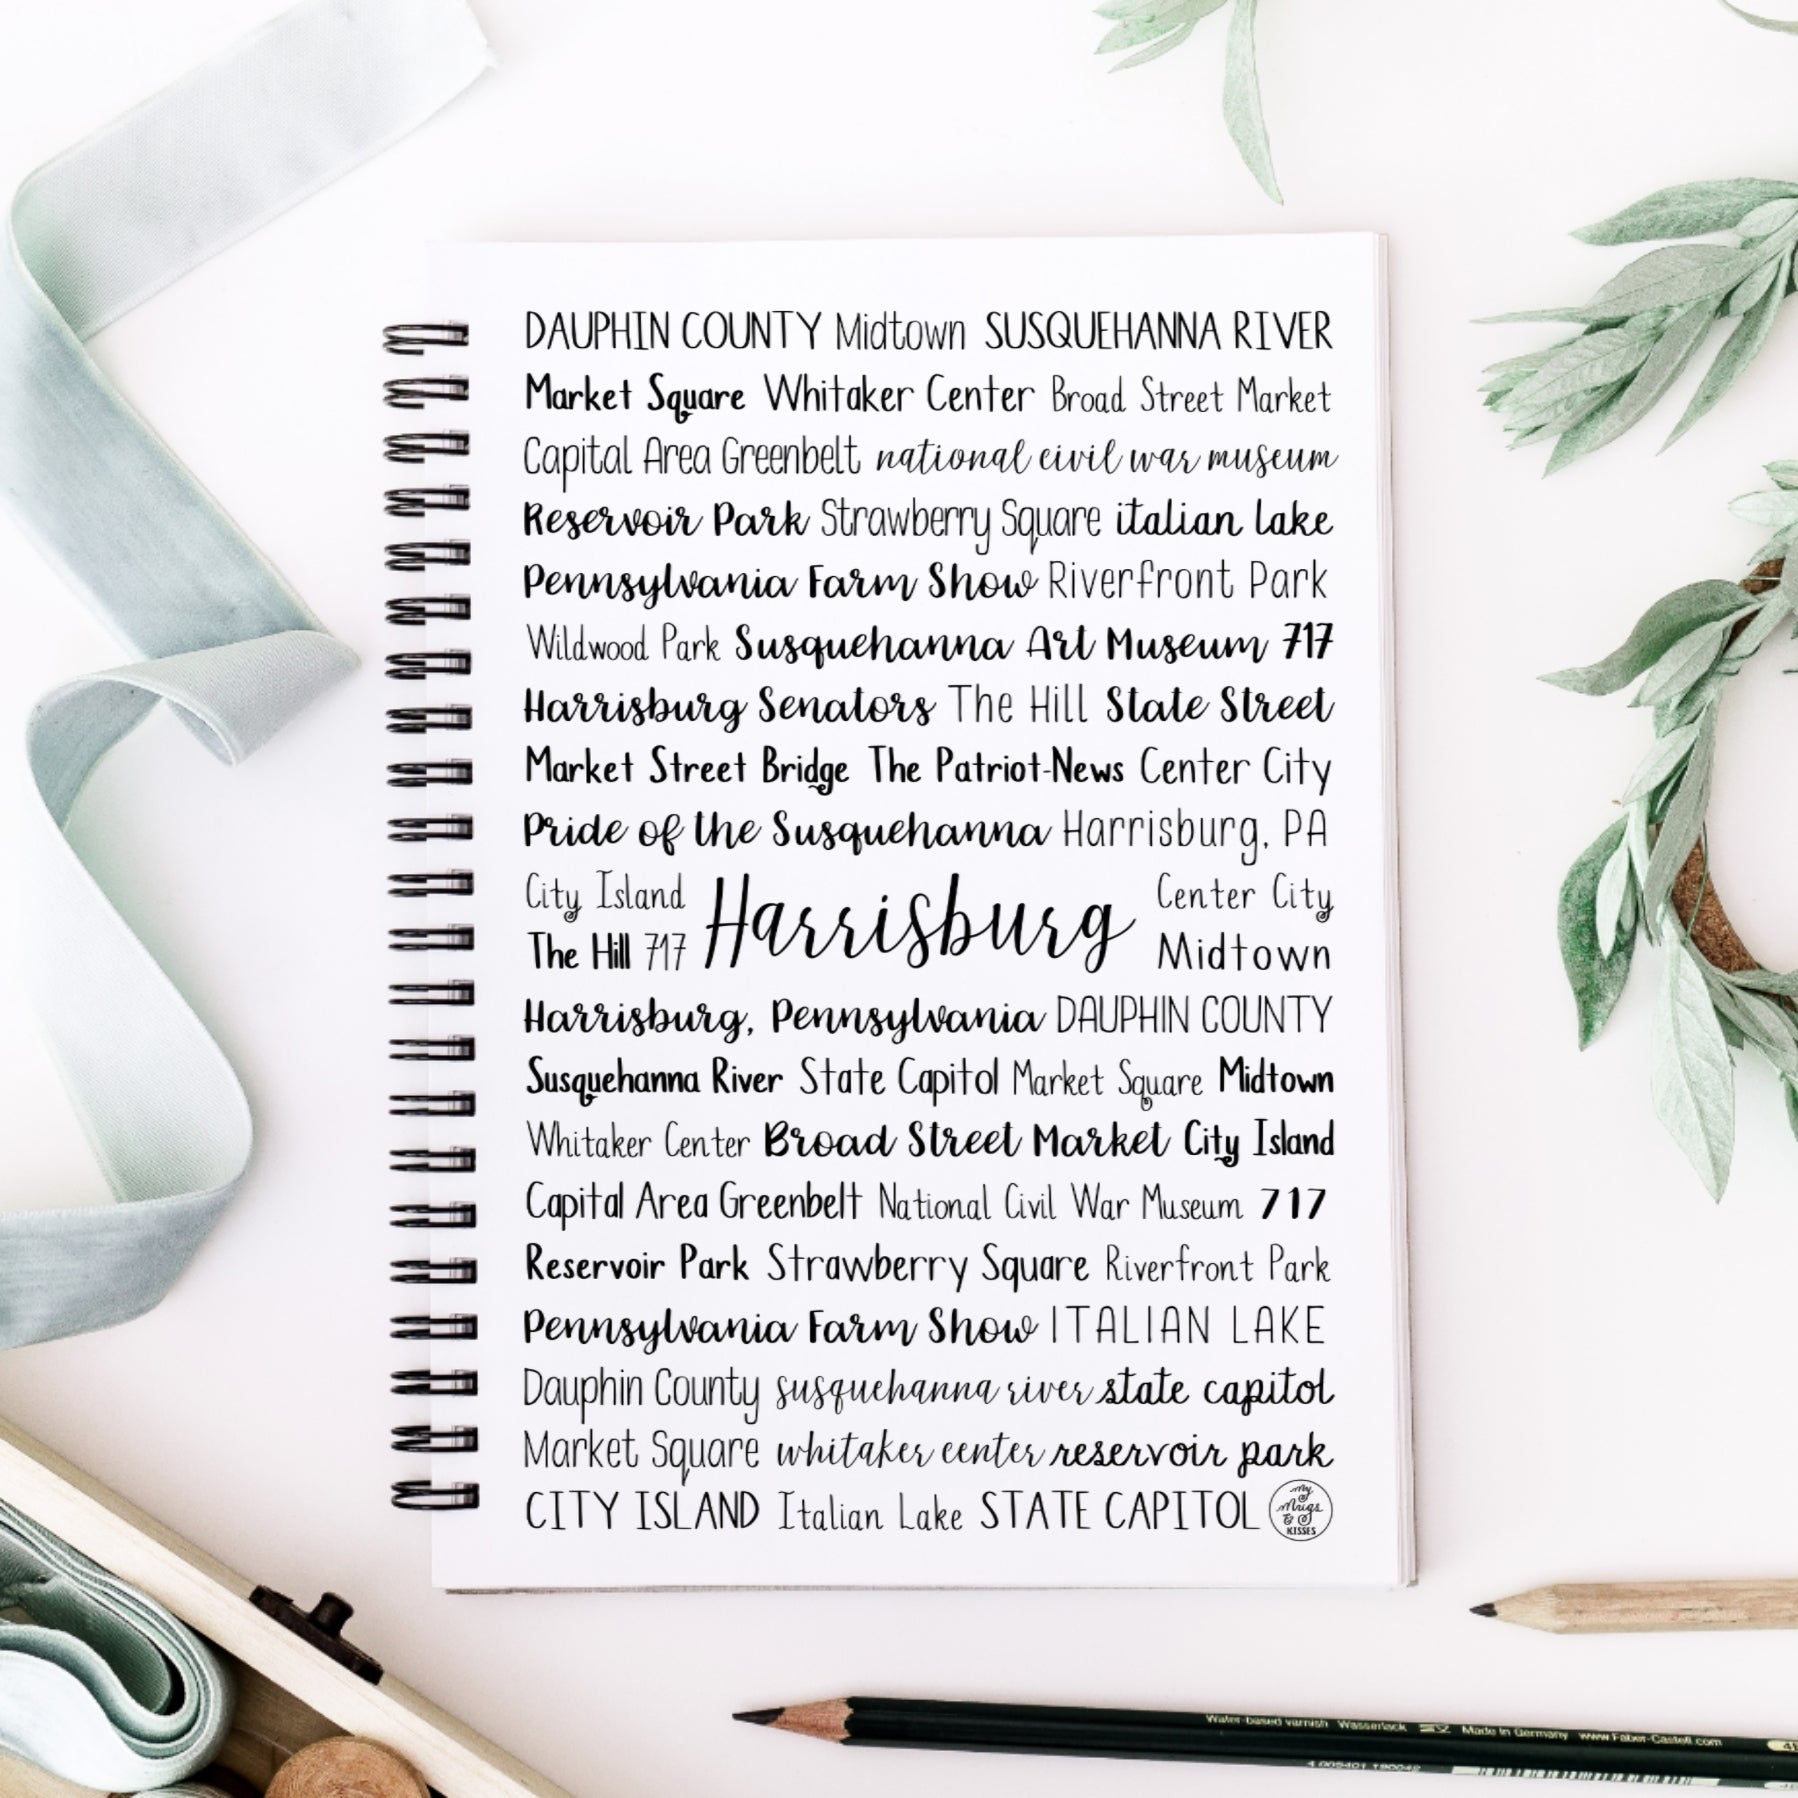 DAUPHIN COUNTY Midtown SUSQUEHANNA RIVER
Market Square Whitaker Center Broad Street Market
Capital Area Greenbelt national civil war museum
Reservoir Park Strawberry Square italian lake
Pennsylvania Farm Show Riverfront Park
Wildwood Park Susquehanna Art Museum 717
Harrisburg Senators The Hill State Street
Market Street Bridge The Patriot-News Center City
Pride of the Susquehanna Harrisburg, PA
City Island
The Hill 717
Harrisburg
Center City
Midtown
Harrisburg, Pennsylvania DAUPHIN COUNTY
Susquehanna River State Capitol Market Square Midtown
Whitaker Center Broad Street Market City Island
Capital Area Greenbelt National Civil War Museum 717
Reservoir Park Strawberry Square Riverfront Park
Pennsylvania Farm Show ITALIAN LAKE
Dauphin County susquehanna river state capitol
Market Square whitaker center reservoir park
CITY ISLAND Italian Lake STATE CAPITOL
My
Mugs
&
KISSES
Water-based varnish Wasserlack Made in Germany www.Faber-Castell.com
4 005401 190042